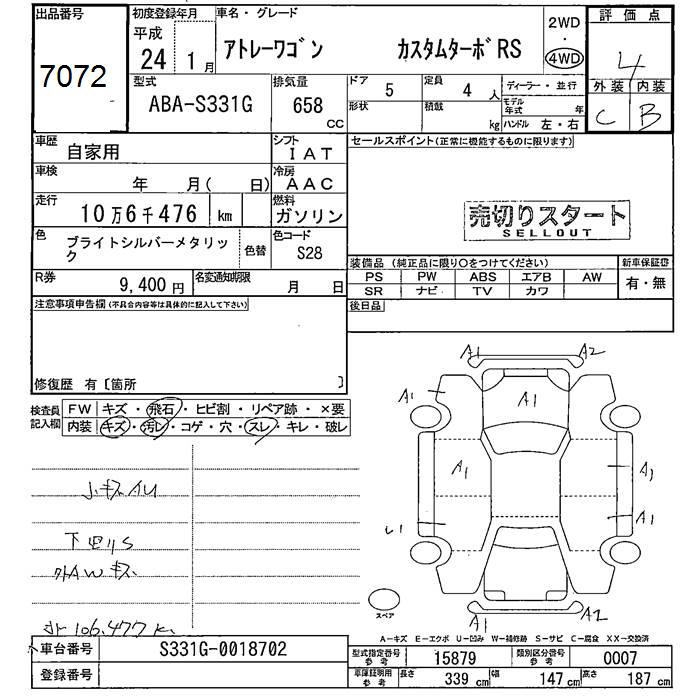 出品番号 初度登録年月 車名・グレード 評価点
7072 平成 24 1月 アトレーワゴン カスタムターボRS 2WD・4WD 4
型式 排気量 ドア 定員 ディーラー・並行 外装 内装
ABA-S331G 658 CC 5 4人 C B
形状 積載 kg モデル年式 年 ハンドル 左・右
車歴 自家用 シフト IAT セールスポイント(正常に機能するものに限ります)
車検 年 月( 日) 冷房 AAC
走行 10万6千476 km 燃料 ガソリン
売切りスタート
SELLOUT
色 ブライトシルバーメタリック 色替 色コード S28
装備品(純正品に限り○をつけてください) 新車保証書
R券 9,400円 名変通知期限 月 日
PS PW ABS エアB AW 有・無
SR ナビ TV カワ
注意事項申告欄(不具合内容等は具体的に記入して下さい) 後日品
修復歴 有〔箇所 〕
検査員記入欄 FW キズ・飛石・ヒビ割・リペア跡・×要
内装 キズ・汚レ・コゲ・穴・スレ・キレ・破レ
A1 A2
A1 A1
A1 A1
A1
A1 A2
小キズAU
下廻りS
外AWキズ
106,477
スペア
A-キズ E-エクボ U-凹み W-補修跡 S-サビ C-腐食 XX-交換済
車台番号 S331G-0018702 型式指定番号 参考 15879 類別区分番号 参考 0007
登録番号 車庫証明用 参考 長さ 339cm 幅 147cm 高さ 187cm